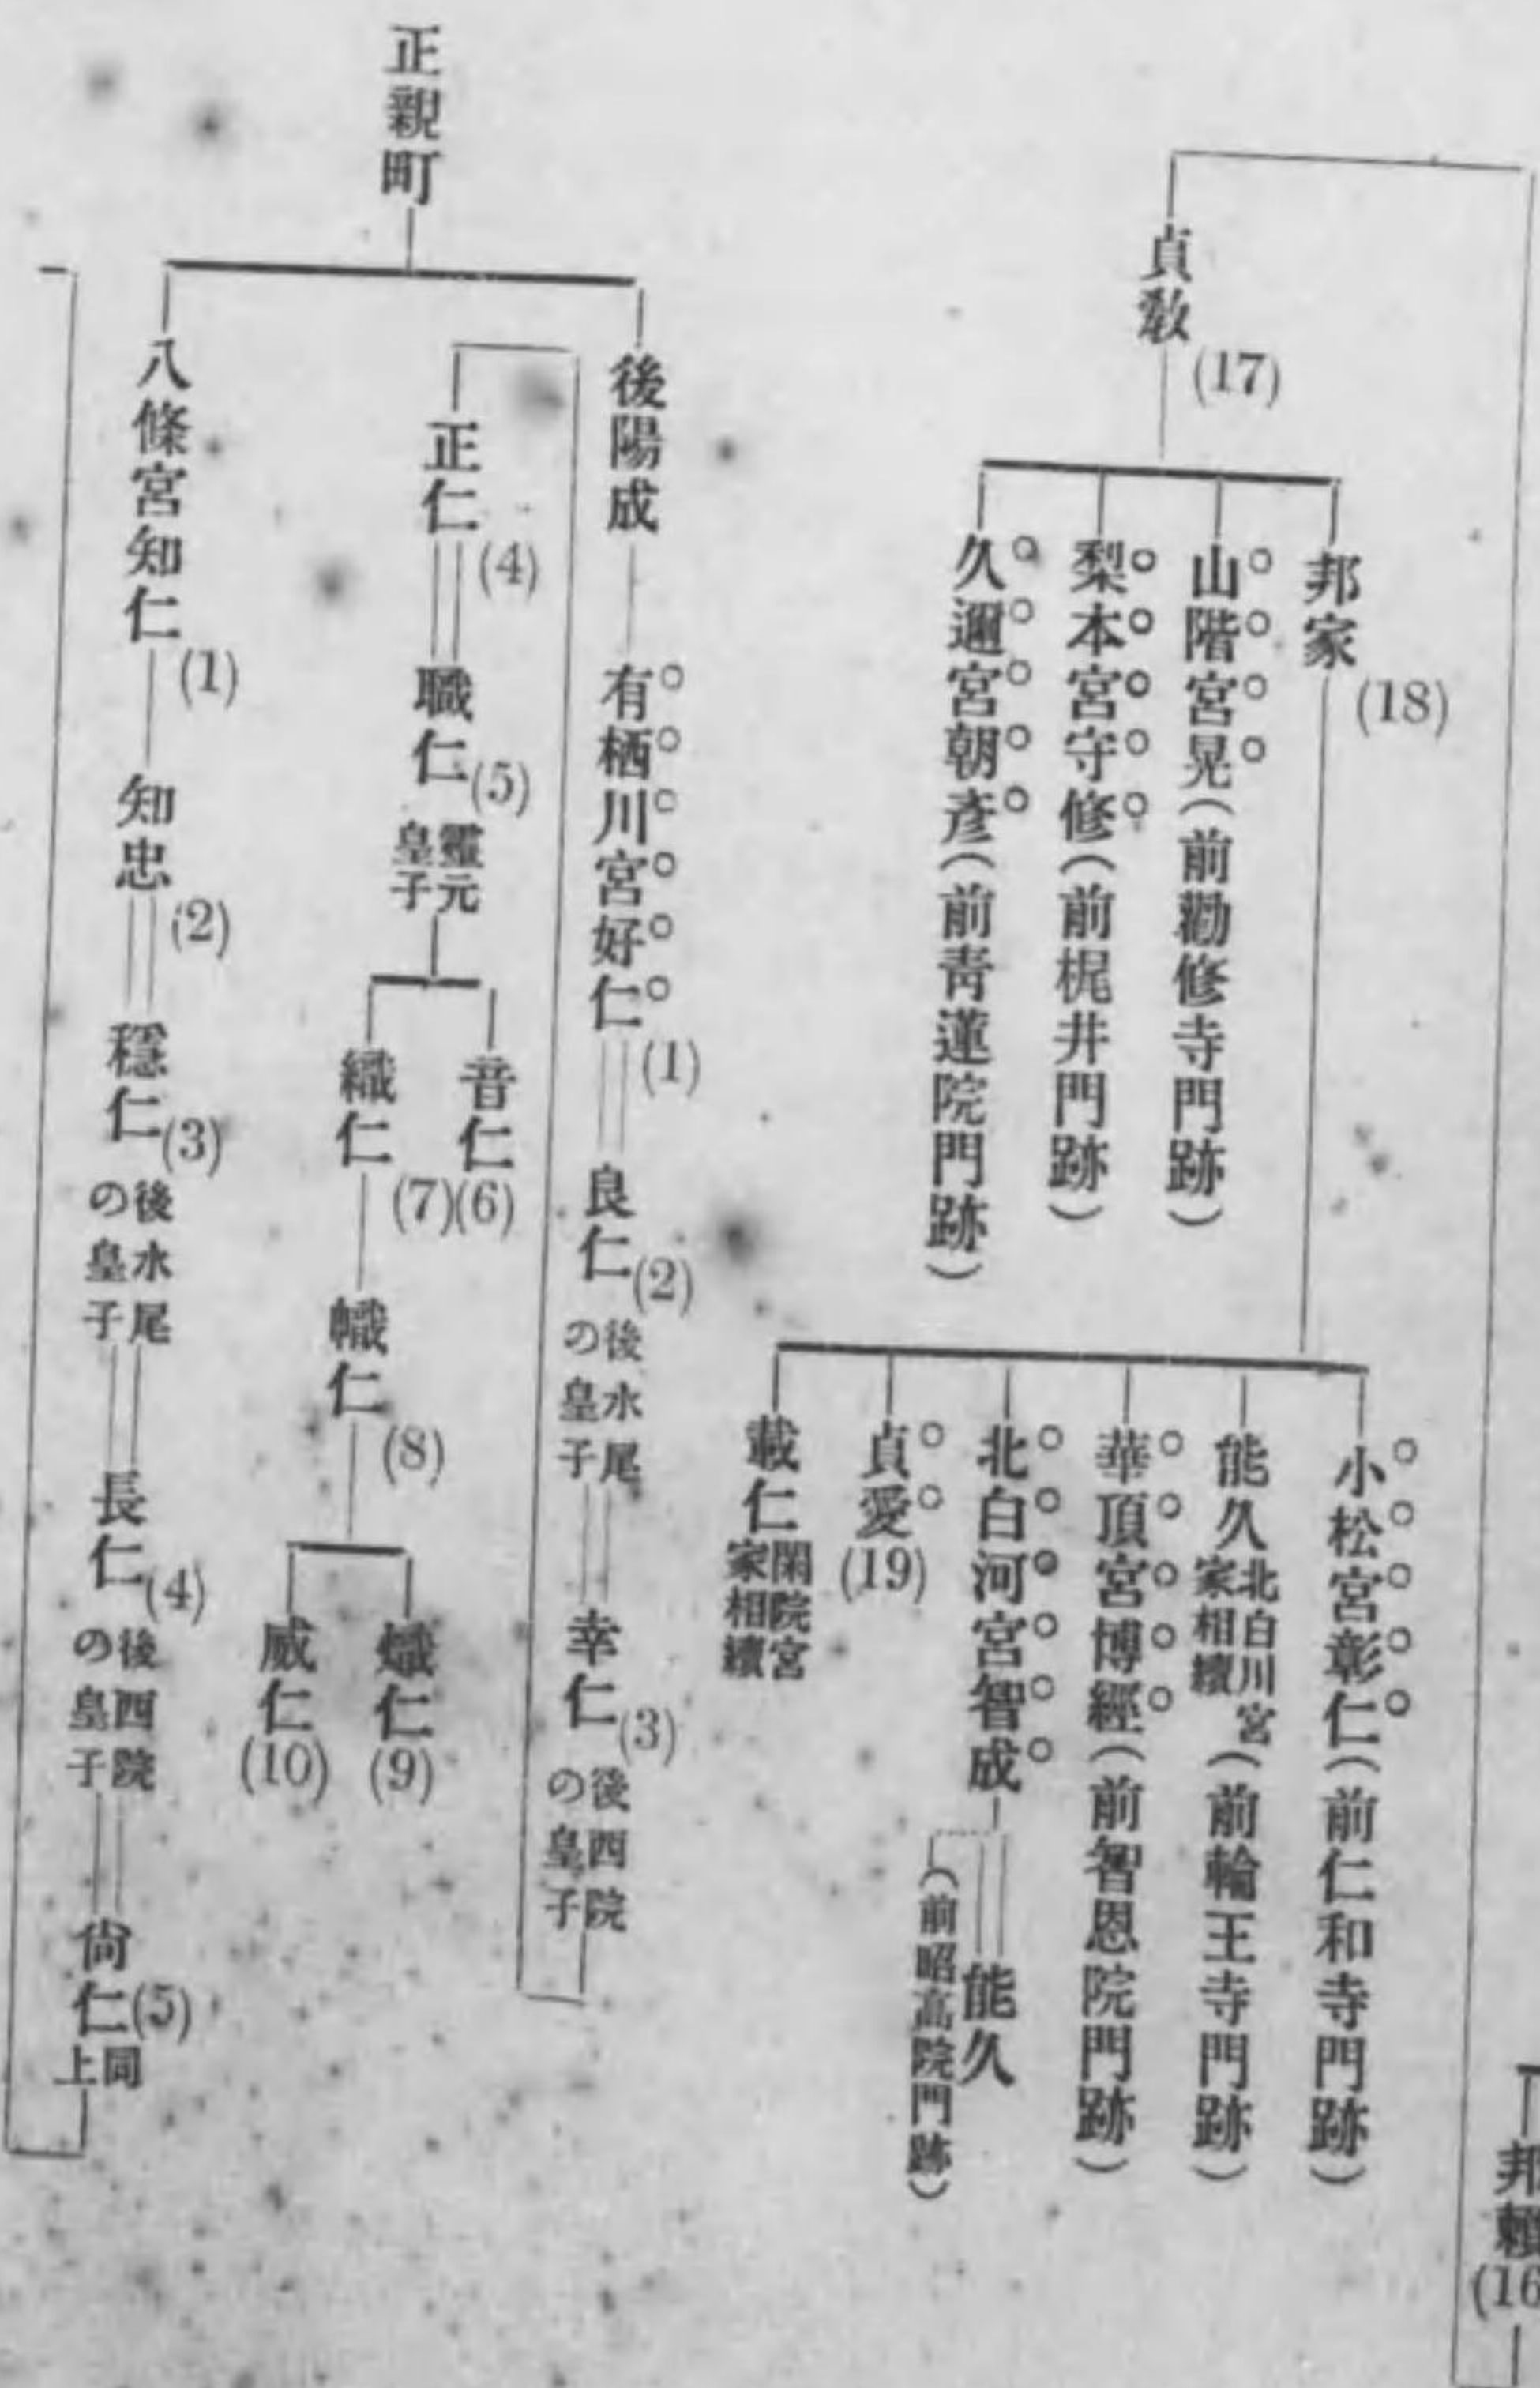 邦賴
(16
貞敎
(17)
邦家
(18)
山階宮晃(前勸修寺門跡)
梨本宮守修(前梶井門跡)
久邇宮朝彥(前靑蓮院門跡)
小松宮彰仁(前仁和寺門跡)
能久
北白川宮
家相續
(前輪王寺門跡)
華頂宮博經(前智恩院門跡)
北白河宮智成
能久
(前昭高院門跡)
貞愛
(19)
載仁
閑院宮
家相續
正親町
後陽成
有栖川宮好仁
(1)
良仁
(2)
後水尾
の皇子
幸仁
(3)
後西院
の皇子
正仁
(4)
職仁
(5)
靈元
皇子
音仁
(6)
織仁
(7)
幟仁
(8)
熾仁
(9)
威仁
(10)
八條宮知仁
(1)
知忠
(2)
穩仁
(3)
後水尾
の皇子
長仁
(4)
後西院
の皇子
尙仁
(5)
同上